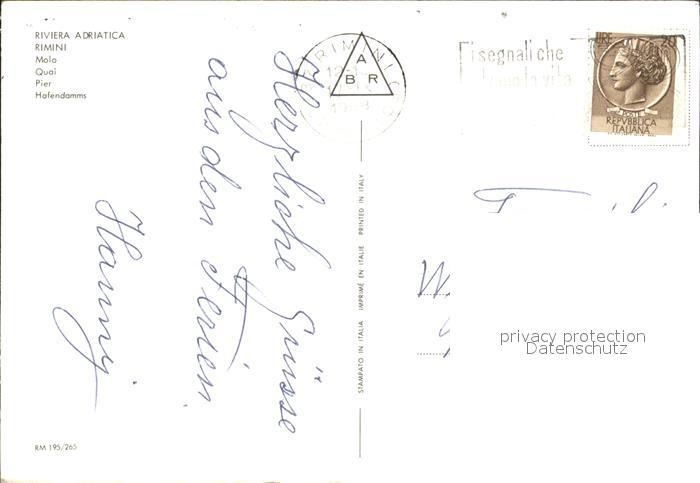 RIVIERA ADRIATICA
RIMINI
Molo
Quai
Pier
Hafendamms
Herzliche Grüsse
aus den Ferien
Hanny
RM 195/265
STAMPATO IN ITALIA IMPRIMÉ EN ITALIE PRINTED IN ITALY
RIMINI
A
B R
i segnali che
la vita
LIRE 20
POSTE
REPVBBLICA
ITALIANA
privacy protection
Datenschutz